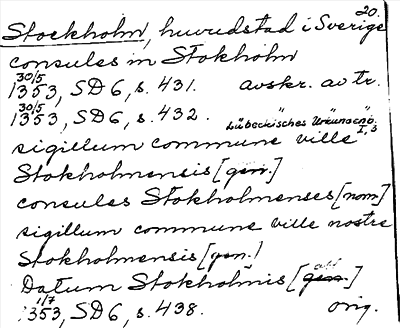 20.
Stockholm, huvudstad i Sverige
consules in Stokholm
30/5
1353, SD6, s. 431. avskr. av tr.
30/5
1353, SD6, s. 432. Lübeckisches Urkundenb.
I, 3
sigillum commune ville
Stokholmensis [gen.]
consules Stokholmenses [nom]
sigillum commune ville nostre
Stokholmensis [gen.]
Datum Stokholmis [gen.]
1/7
1353, SD6, s. 438. orig.